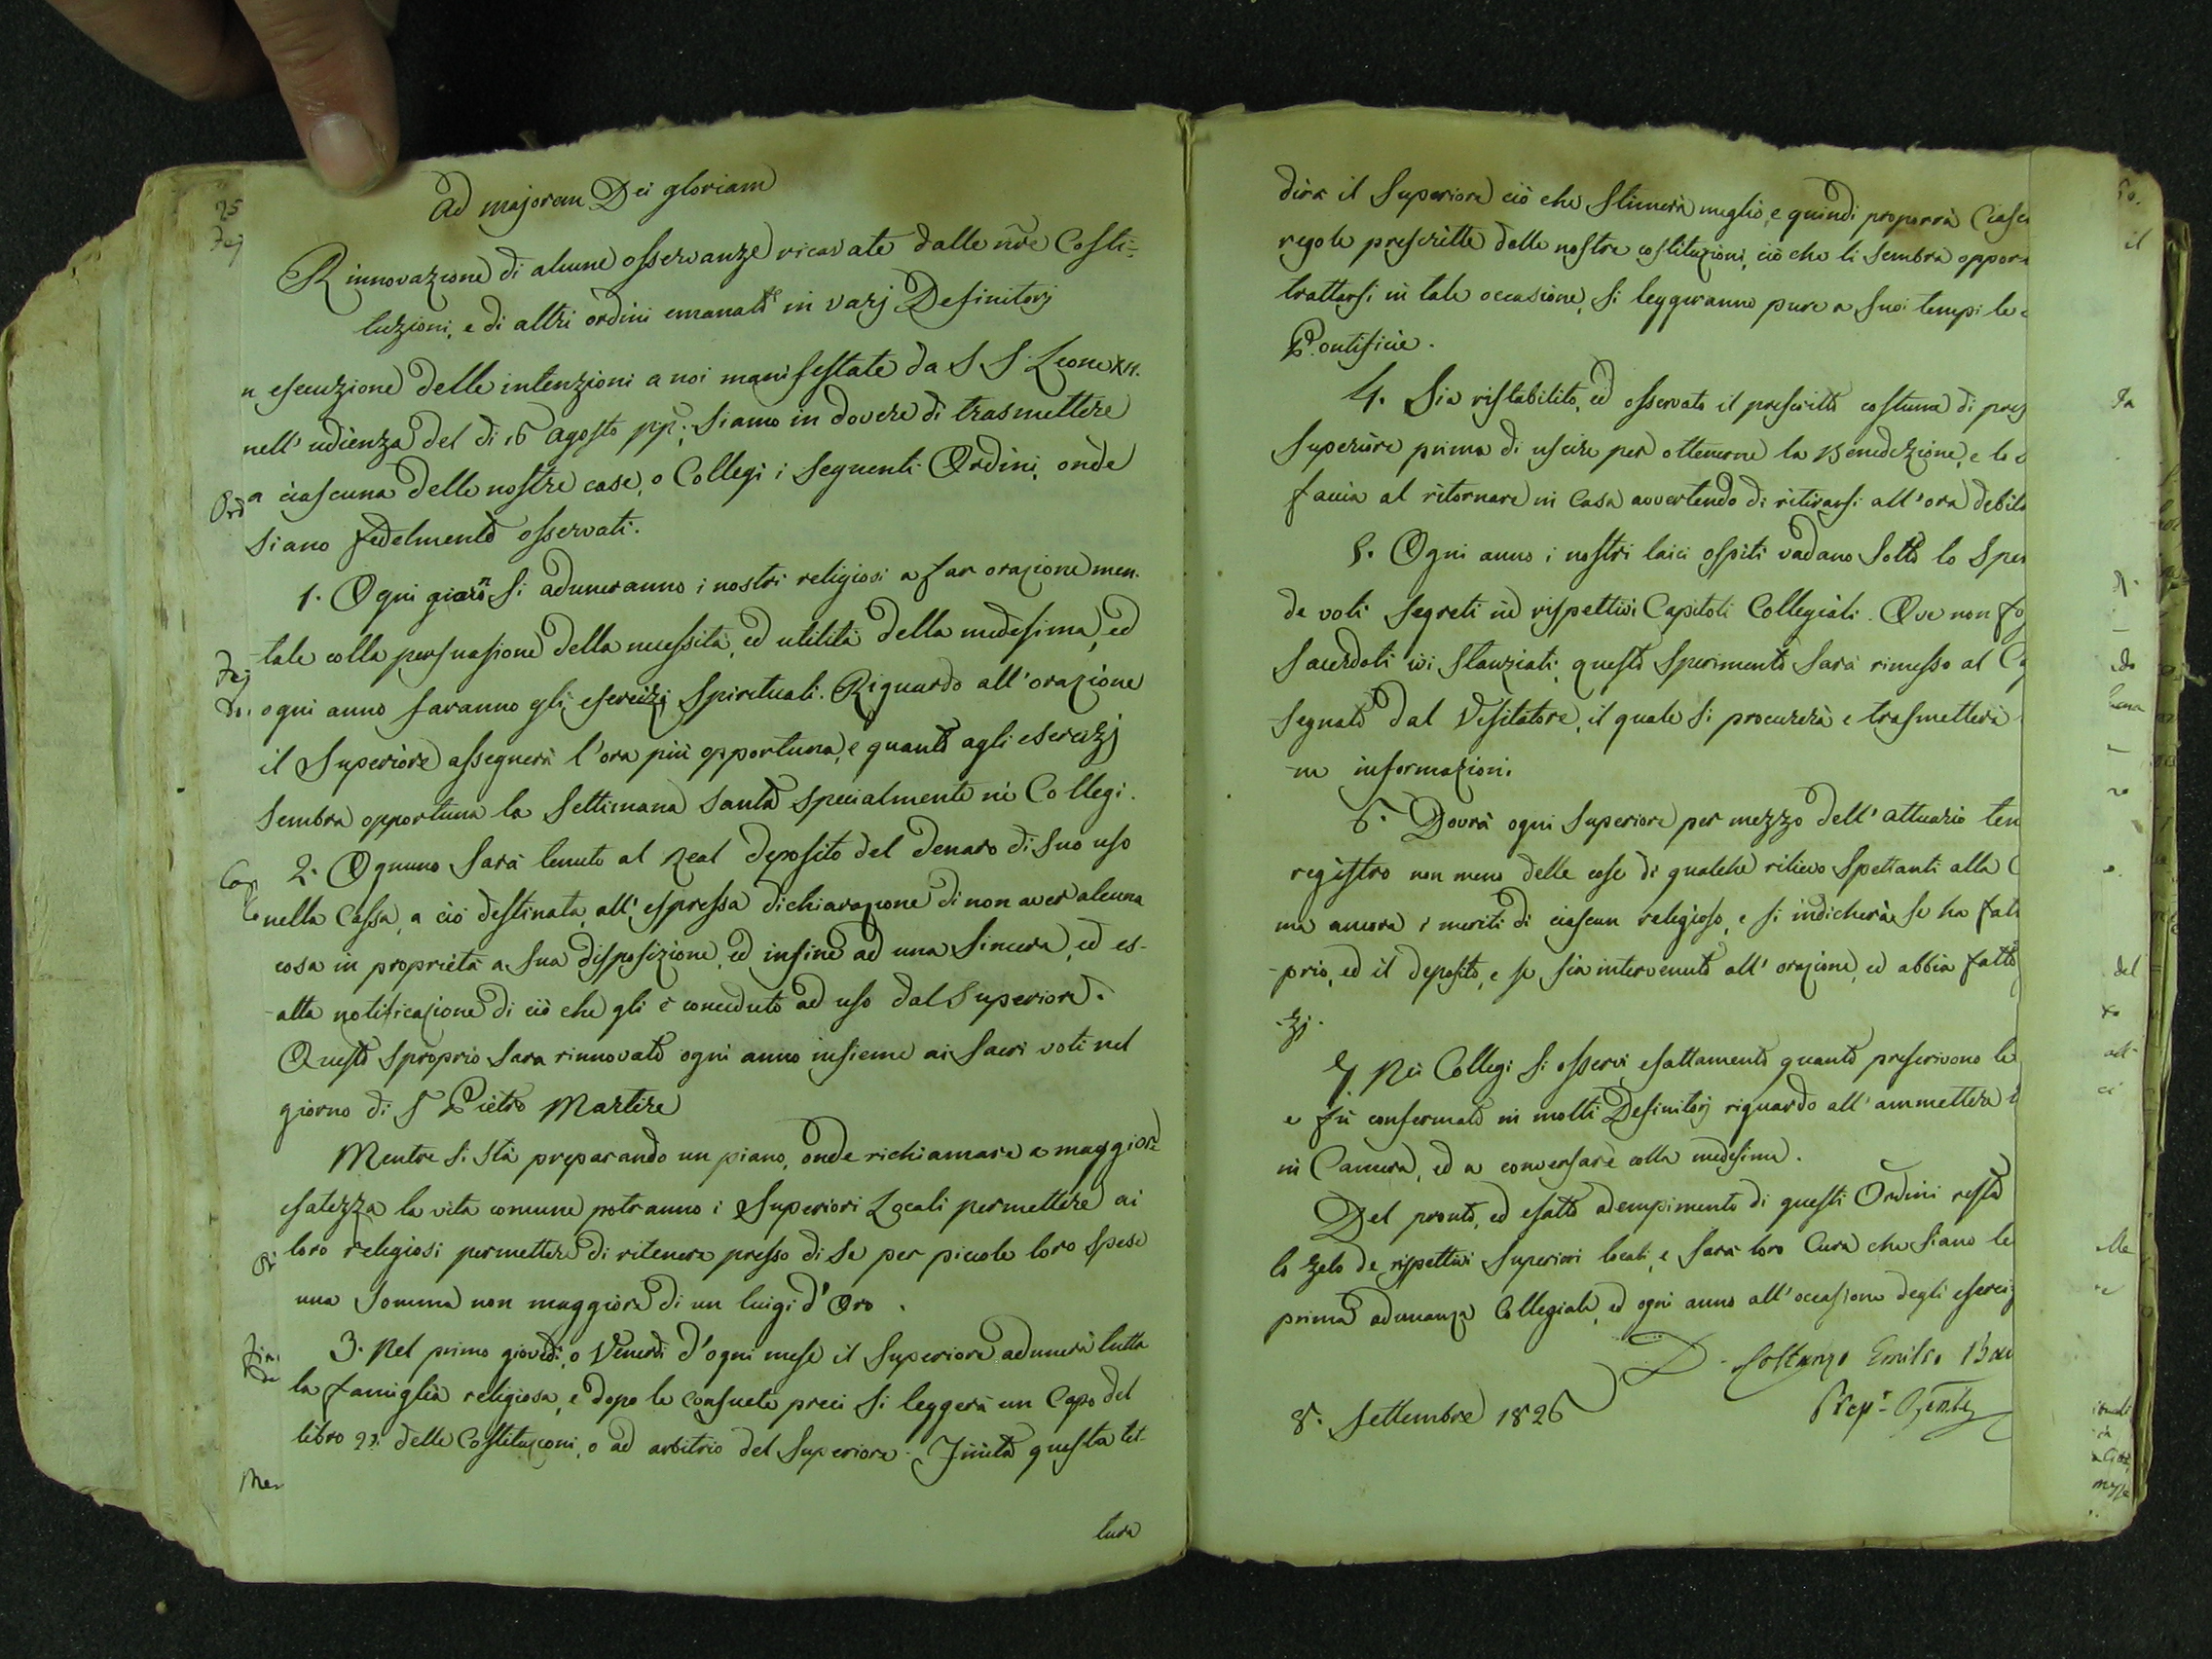 Ad majorem Dei gloriam
Rinnovazione di alcune osservanze ricavate dalle nre Costi-
tuzioni, e di altri ordini emanati in varj Definitorj
n esecuzione delle intenzioni a noi manifestate da S S. Leone XII.
nell' udienza del dì 16 Agosto pp; siamo in dovere di trasmettere
a ciascuna delle nostre case, o Collegi i seguenti Ordini, onde
siano fedelmente osservati.
1. Ogni giorno si aduneranno i nostri religiosi a far orazione men-
tale colla persuasione della necessità, ed utilità della medesima, ed
ogni anno faranno gli esercizj Spirituali. Riguardo all' orazione
il Superiore assegnerà l'ora più opportuna, e quanto agli esercizj
sembra opportuna la Settimana santa specialmente nè Collegi.
2. Ognuno sarà tenuto al real deposito del denaro di suo uso
nella Cassa, a ciò destinata, all' espressa dichiarazione di non aver alcuna
cosa in proprietà a sua disposizione, ed insine ad una sincera, ed es-
atta notificazione di ciò che gli è conceduto ad uso dal Superiore.
Questo sproprio sara rinnovato ogni anno insieme ai sacri voti nel
giorno di S Pietro Martire
Mentre si stà preparando un piano, onde richiamare a maggiore
esatezza la vita comune potranno i Superiori Locali permettere ai
loro religiosi permettere di ritenere presso di se per piccole loro spese
una somma non maggiore di un luigi d'Oro.
3. Nel primo giovedì, o Venerdì d'ogni mese il Superiore adunerà tutta
la famiglia religiosa, e dopo le consuete preci si leggerà un Capo del
libro 2º. delle Costituzioni, o ad arbitrio del Superiore. Finita questa let-
tura
dirà il Superiore ciò che stimerà meglio, e quindi proporrà Ciasc
regole prescritte dalle nostre costituzioni, ciò che li sembra oppor
trattarsi in tale occasione, si leggeranno pure a suoi tempi le
Pontificie.
4. Sia ristabilito, ed osservato il prescritto costume di pres
Superiore prima di uscire per ottenerne la Benedizione, e lo
faccia al ritornare in Casa avvertendo di ritirarsi all' ora debita
5. Ogni anno i nostri laici ospiti vadano sotto lo sper
de voti segreti nè rispettivi Capitoli Collegiali. Ove non fo
sacerdoti ivi stanziati, questo sperimento sarà rimesso al C
segnato dal Visitatore, il quale si procurerà e trasmetterà
-ne informazioni.
6. Dovrà ogni Superiore per mezzo dell' attuario ten
registro non meno delle cose di qualche rilievo spettanti alla C
ma ancora i meriti di ciascun religioso, e si indicherà se ha fat
-prio, ed il deposito, e se sia intervenuto all' orazione, ed abbia fatto
-zj.
7 Nei Collegi si osservi esattamente quanto prescrivono le
e fù confermato in molti Definitorj riguardo all' ammettere
in Camera, ed a conversare colla medesima.
Del pronto, ed esatto adempimento di questi Ordini resta
lo zelo de rispettivi Superiori locali, e sarà loro Cura che siano le
prima adunanza Collegiale, ed ogni anno all' occasione degli eserciz
D. Costanzo Emilio
8. Settembre 1826